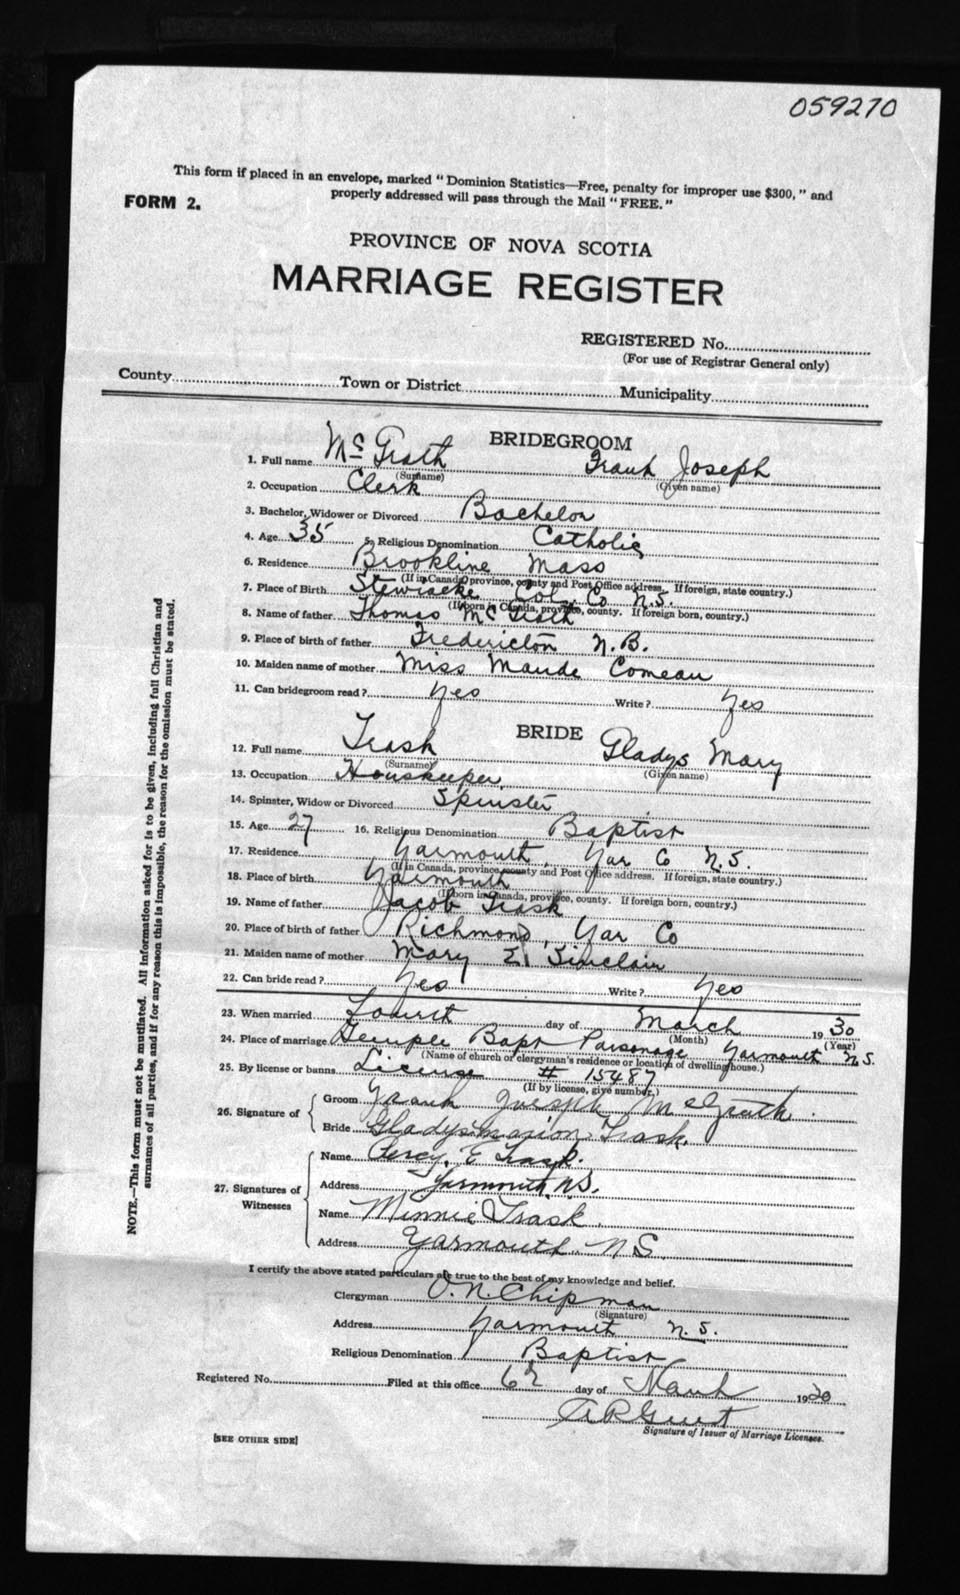 059270
This form if placed in an envelope, marked "Dominion Statistics—Free, penalty for improper use $300," and
FORM 2. properly addressed will pass through the Mail "FREE."
PROVINCE OF NOVA SCOTIA
MARRIAGE REGISTER
REGISTERED No.
(For use of Registrar General only)
County Town or District Municipality
BRIDEGROOM
1. Full name McGrath Frank Joseph
(Surname) (Given name)
2. Occupation Clerk
3. Bachelor, Widower or Divorced Bachelor
4. Age 35 5. Religious Denomination Catholic
6. Residence Brookline Mass
(If in Canada, province, county and Post Office address. If foreign, state country.)
7. Place of Birth Stewiacke Col. Co N.S.
(If born in Canada, province, county. If foreign born, country.)
8. Name of father Thomas McGrath
9. Place of birth of father Fredericton N.B.
10. Maiden name of mother Miss Maude Comeau
11. Can bridegroom read? Yes Write? Yes
BRIDE
12. Full name Trask Gladys Mary
(Surname) (Given name)
13. Occupation Houskeeper
14. Spinster, Widow or Divorced Spinster
15. Age 27 16. Religious Denomination Baptist
17. Residence Yarmouth, Yar Co N.S.
(If in Canada, province, county and Post Office address. If foreign, state country.)
18. Place of birth Yarmouth
(If born in Canada, province, county. If foreign born, country.)
19. Name of father Jacob Trask
20. Place of birth of father Richmond, Yar Co
21. Maiden name of mother Mary E. Sinclair
22. Can bride read? Yes Write? Yes
23. When married Fourst day of March 1930
(Month) (Year)
24. Place of marriage Temple Bapt Parsonage Yarmouth N.S.
(Name of church or clergyman's residence or location of dwelling house.)
25. By license or banns License # 15487
(If by license, give number.)
26. Signature of Groom Frank Joseph McGrath.
Bride Gladys Marion Trask.
27. Signatures of Witnesses Name Percy E Trask.
Address Yarmouth, N.S.
Name Minnie Trask.
Address Yarmouth N S
I certify the above stated particulars are true to the best of my knowledge and belief.
Clergyman O. N. Chipman
(Signature)
Address Yarmouth N.S.
Religious Denomination Baptist
Registered No. Filed at this office day of March 19
Signature of Issuer of Marriage Licenses.
[SEE OTHER SIDE]
NOTE.—This form must not be mutilated. All information asked for is to be given, including full Christian and
surnames of all parties, and if for any reason this is impossible, the reason for the omission must be stated.